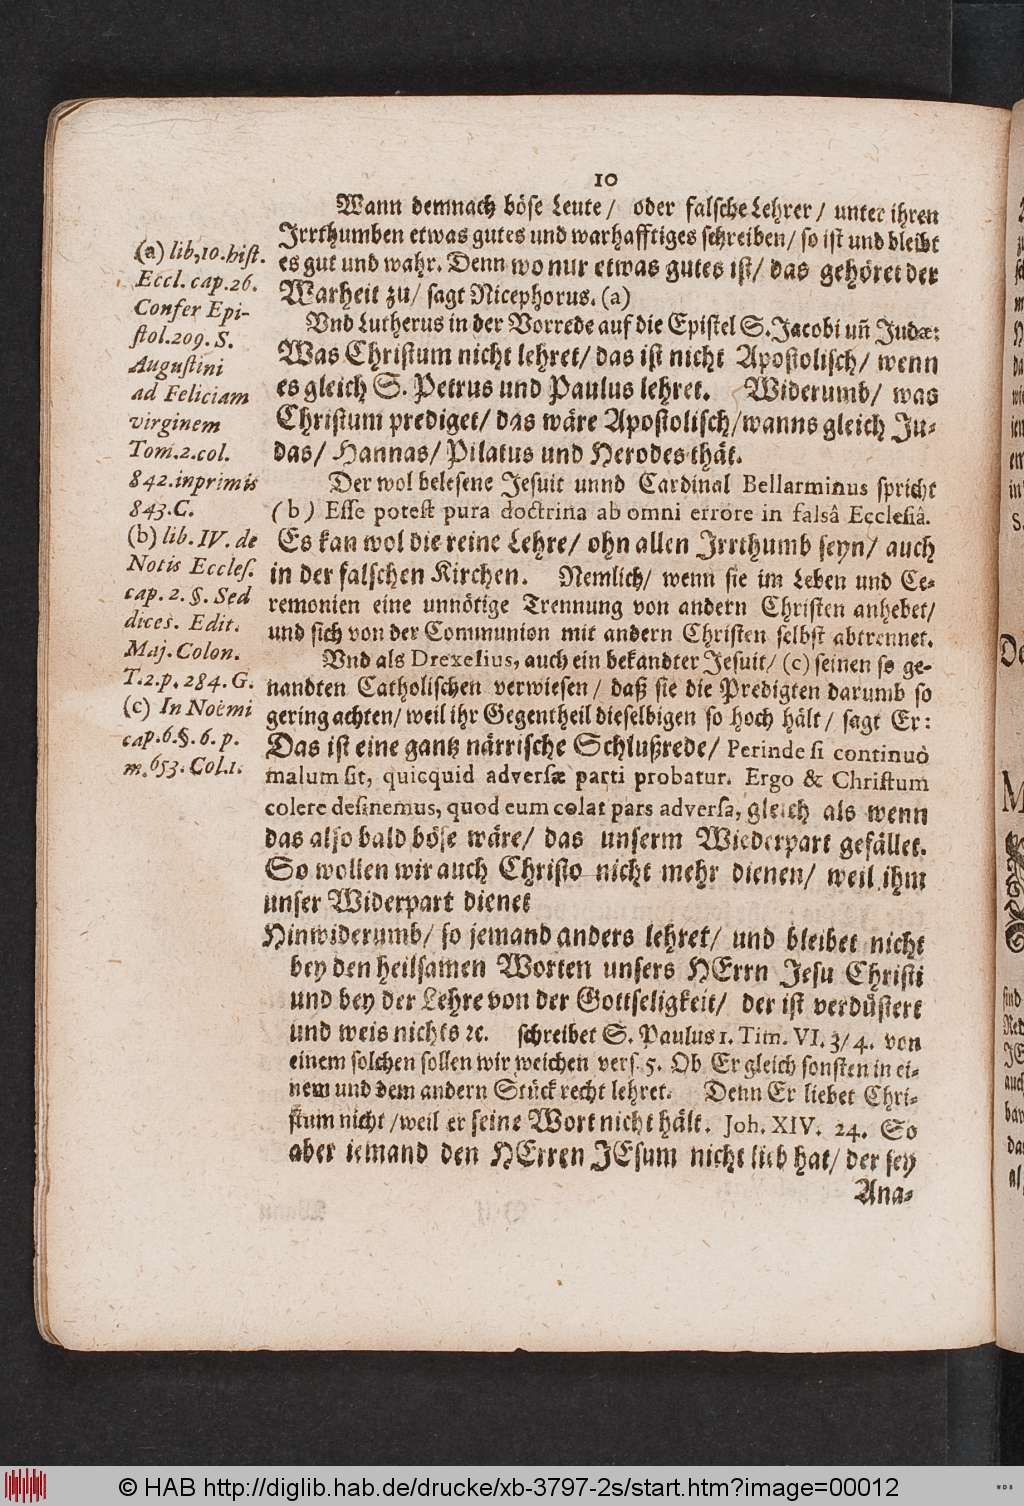 10
Wann demnach böse Leute / oder falsche Lehrer / unter ihren
Jrrthumben etwas gutes und warhafftiges schreiben / so ist und bleibt
es gut und wahr. Denn wo nur etwas gutes ist / das gehöret der
Warheit zu / sagt Nicephorus. (a)
Vnd Lutherus in der Vorrede auf die Epistel S. Jacobi uñ Judæ:
Was Christum nicht lehret / das ist nicht Apostolisch / wenn
es gleich S. Petrus und Paulus lehret. Widerumb / was
Christum prediget / das wäre Apostolisch / wanns gleich Ju-
das / Hannas / Pilatus und Herodes thät.
Der wol belesene Jesuit unnd Cardinal Bellarminus spricht
(b) Esse potest pura doctrina ab omni errore in falsâ Ecclesiâ.
Es kan wol die reine Lehre / ohn allen Jrrthumb seyn / auch
in der falschen Kirchen. Nemlich / wenn sie im Leben und Ce-
remonien eine unnötige Trennung von andern Christen anhebet /
und sich von der Communion mit andern Christen selbst abtrennet.
Vnd als Drexelius, auch ein bekandter Jesuit / (c) seinen so ge-
nandten Catholischen verwiesen / daß sie die Predigten darumb so
gering achten / weil ihr Gegentheil dieselbigen so hoch hält / sagt Er:
Das ist eine gantz närrische Schlußrede / Perinde si continuò
malum sit, quicquid adversæ parti probatur. Ergo & Christum
colere desinemus, quod eum colat pars adversa, gleich als wenn
das also bald böse wäre / das unserm Wiederpart gefället.
So wollen wir auch Christo nicht mehr dienen / weil ihm
unser Widerpart dienet
Hinwiderumb / so jemand anders lehret / und bleibet nicht
bey den heilsamen Worten unsers HErrn Jesu Christi
und bey der Lehre von der Gottseligkeit / der ist verdüstert
und weis nichts ꝛc. schreibet S. Paulus 1. Tim. VI. 3 / 4. von
einem solchen sollen wir weichen vers. 5. Ob Er gleich sonsten in ei-
nem und dem andern Stück recht lehret. Denn Er liebet Chri-
stum nicht / weil er seine Wort nicht hält. Joh. XIV. 24. So
aber jemand den HErren JEsum nicht lieb hat / der sey
Ana-
(a) lib, 10. hist.
Eccl. cap. 26.
Confer Epi-
stol. 209. S.
Augustini
ad Feliciam
virginem
Tom. 2. col.
842. inprimis
843. C.
(b) lib. IV. de
Notis Eccles.
cap. 2. §. Sed
dices. Edit.
Maj. Colon.
T. 2. p. 284. G.
(c) In Noëmi
cap. 6. §. 6. p.
m. 653. Col. 1.
© HAB http://diglib.hab.de/drucke/xb-3797-2s/start.htm?image=00012